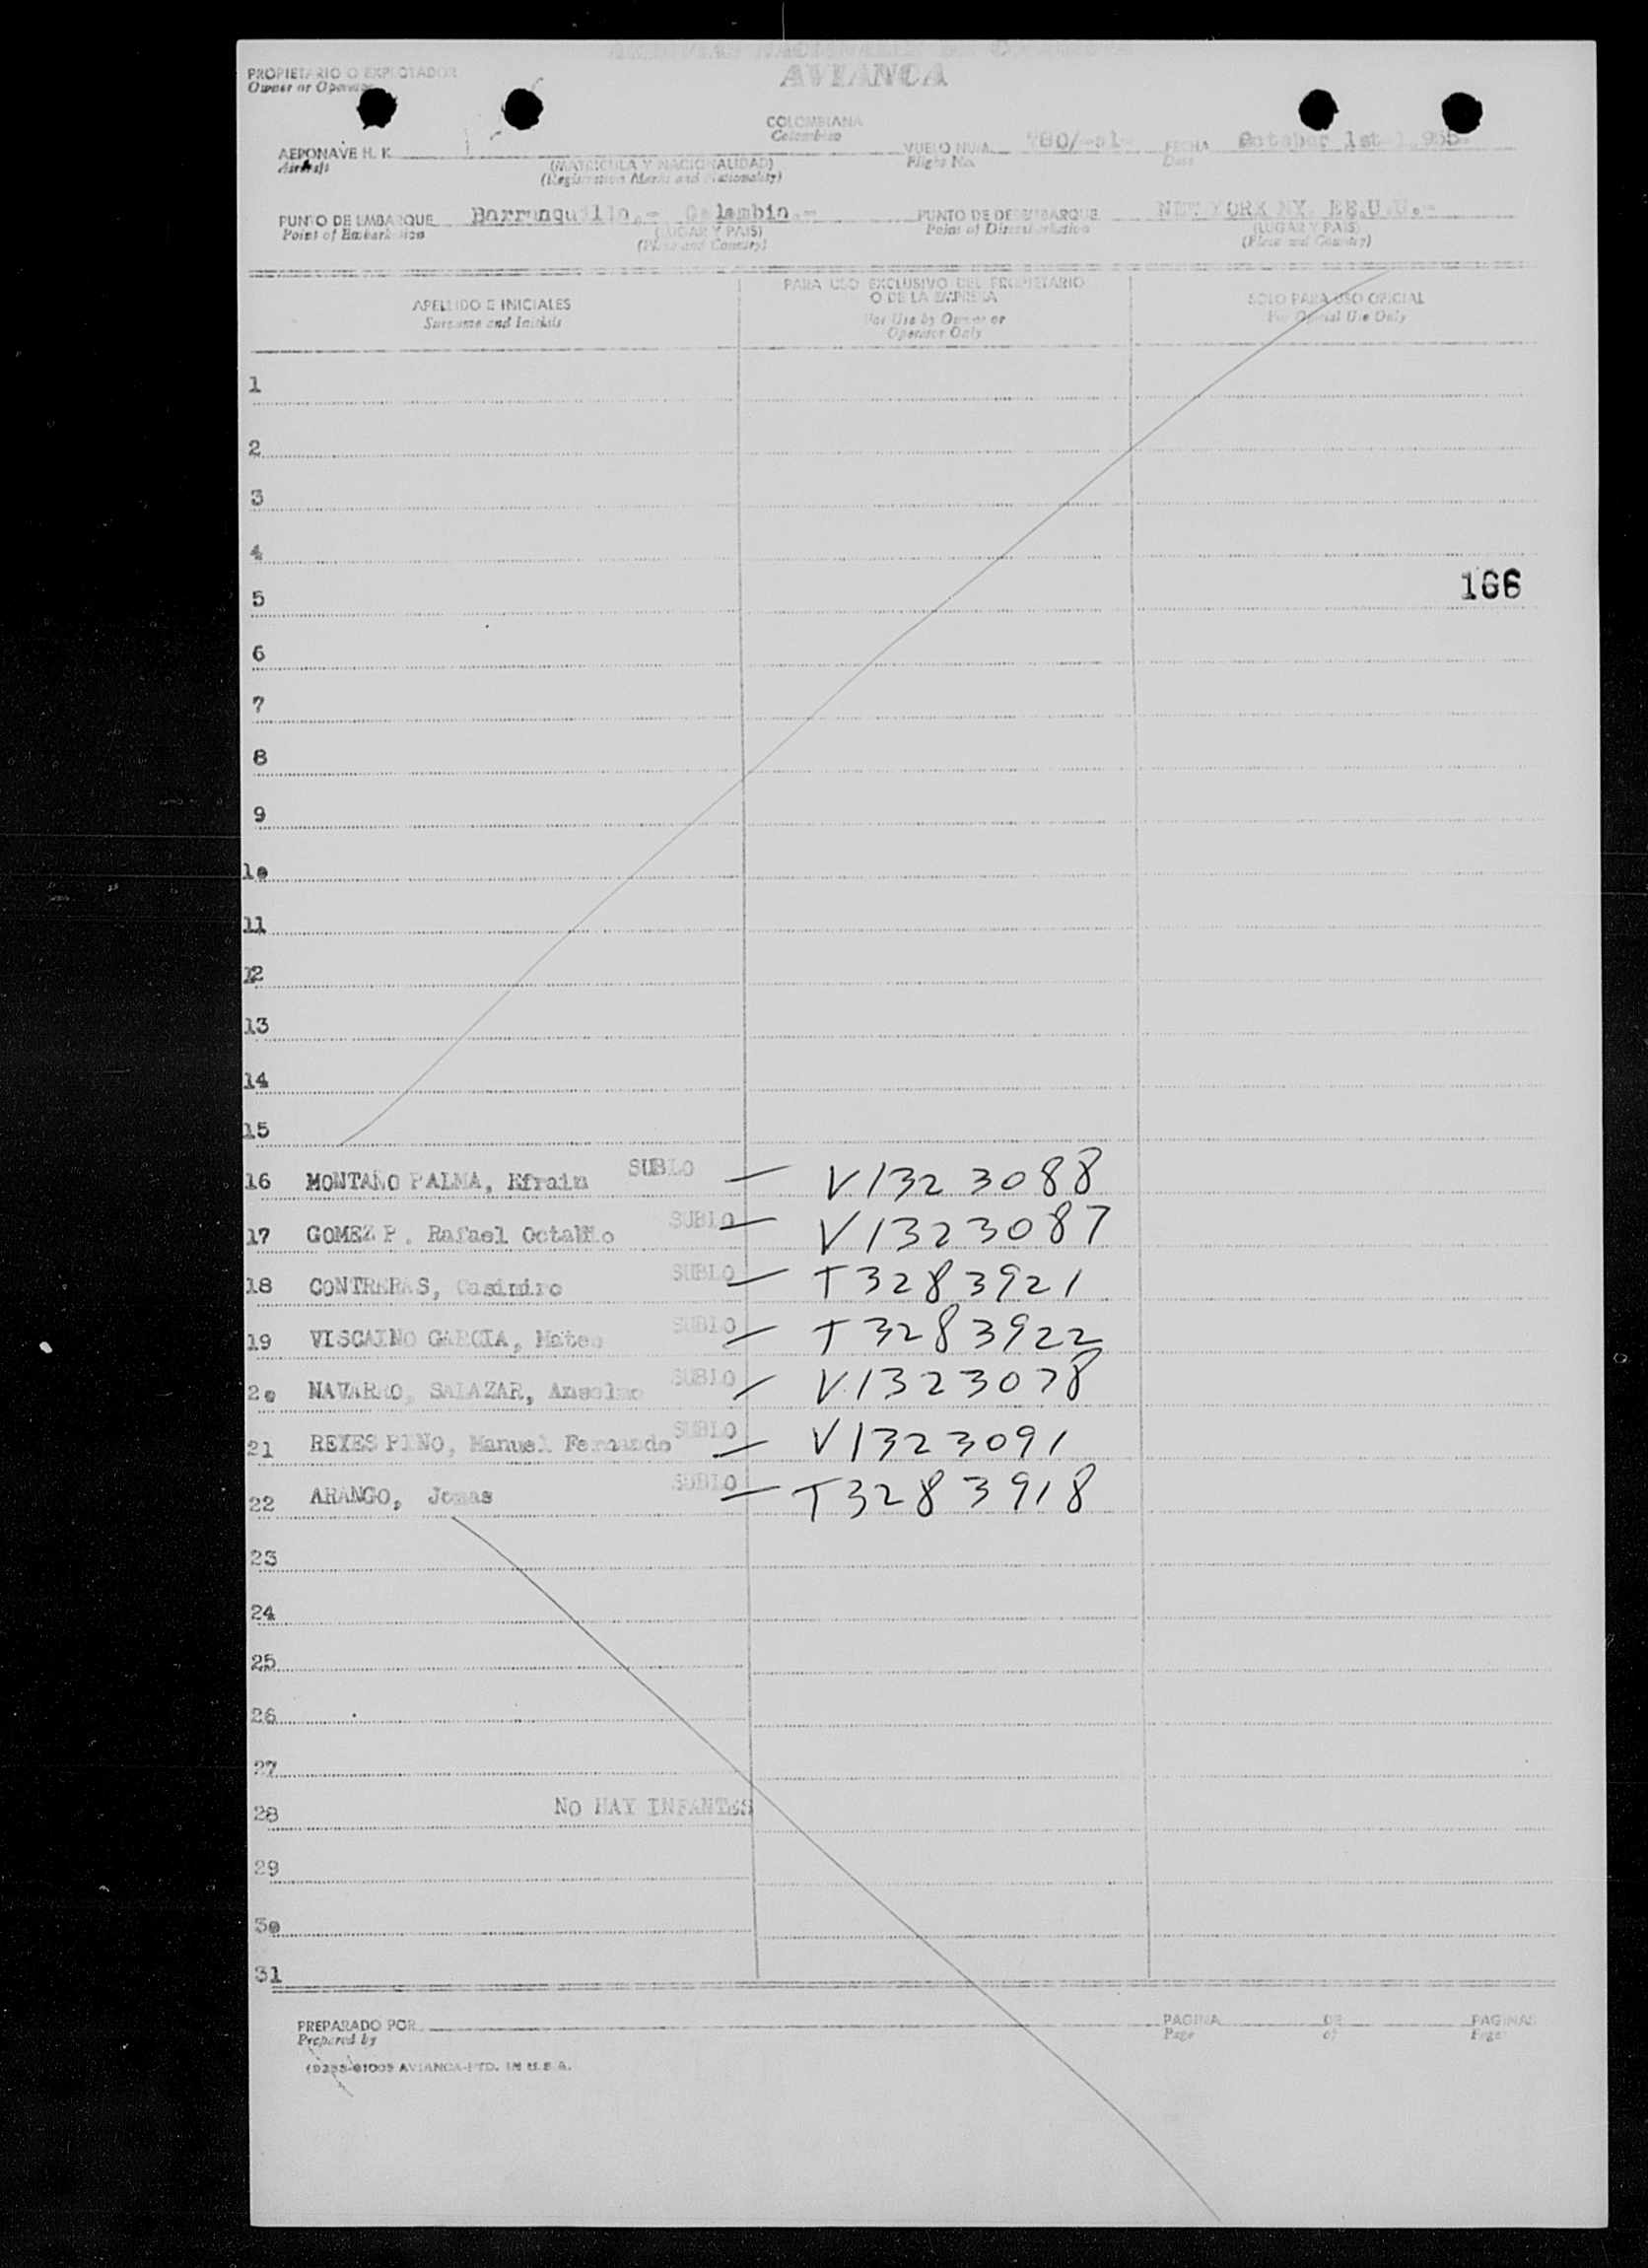 AVIANCA
PROPIETARIO O EXPLOTADOR
Owner or Operator
COLOMBIANA
Colombian
AERONAVE H. K.
Aircraft
(MATRICULA Y NACIONALIDAD)
(Registration Marks and Nationality)
VUELO NUM.
Flight No.
FECHA October 1st
Date
PUNTO DE EMBARQUE Barranquilla.- Colombia.-
Point of Embarkation
(LUGAR Y PAIS)
(Place and Country)
PUNTO DE DESEMBARQUE NEW YORK NY. EE.U.U.-
Point of Disembarkation
(LUGAR Y PAIS)
(Place and Country)
APELLIDO E INICIALES
Surname and Initials
PARA USO EXCLUSIVO DEL PROPIETARIO
O DE LA EMPRESA
For Use by Owner or
Operator Only
SOLO PARA USO OFICIAL
For Official Use Only
1
2
3
4
166
5
6
7
8
9
10
11
12
13
14
15
16 MONTAÑO PALMA, Efrain SUBLO — V1323088
17 GOMEZ P. Rafael SUBLO — V1323087
18 CONTRERAS, Casimiro SUBLO — T3283921
19 VISCAINO GARCIA, Mateo SUBLO — T3283922
20 NAVARRO, SALAZAR, Anselmo SUBLO — V1323078
21 REYES PINO, Manuel Fernando SUBLO — V1323091
22 ARANGO, Jomas SUBLO — T3283918
23
24
25
26
27
28 NO HAY INFANTES
29
30
31
PREPARADO POR
Prepared by
PAGINA DE PAGINAS
Page of Pages
AVIANCA-PTD. IN U.S.A.